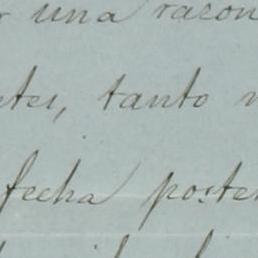 una razon
tes, tanto
fecha poster